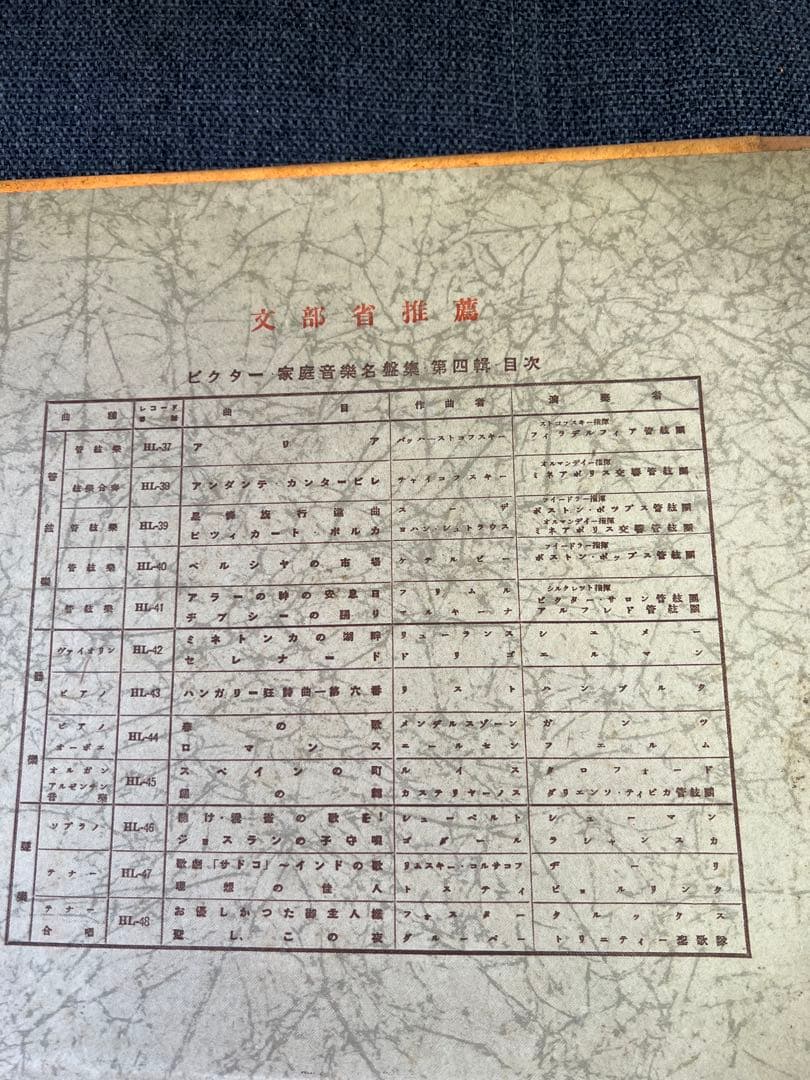 文部省推薦
ビクター・家庭音樂名盤集・第四輯・目次
曲種 レコード番號 曲目 作曲者 演奏者
管絃樂
管絃樂 HL-37 アリア バッハ-ストコフスキー ストコフスキー指揮 フィラデルフィア管絃團
絃樂合奏 HL-38 アンダンテ・カンタービレ チャイコフスキー オルマンディー指揮 ミネアポリス交響管絃團
管絃樂 HL-39 旅行進曲 スーザ フイードラー指揮 ボストン・ポップス管絃團
ピツィカート ポルカ ヨハン・シュトラウス オルマンデイー指揮 ミネアポリス交響管絃團
管絃樂 HL-40 ペルシャの市場 ケテルビー フイードラー指揮 ボストン・ポップス管絃團
管絃樂 HL-41 アラーの神の安息日 フリムル シルクレット指揮 ビクター・サロン管絃團
チプシーの踊り マルキーナ アルフレド管絃團
器樂
ヴァイオリン HL-42 ミネトンカの湖畔 リューランス シュメー
セレナード ドリゴ エルマン
ピアノ HL-43 ハンガリー狂詩曲―第六番 リスト ハンブルク
ピアノ HL-44 春の歌 メンデルスゾーン ガンツ
オーボエ ロマンス ニールセン フエルム
オルガン HL-45 スペインの町 ルイス クロフォード
アルゼンチン音樂 の カステリヤーノス ダリエンソ・ティピカ管絃團
聲樂
ソプラノ HL-46 聴け・雲雀の歌を! シューベルト シューマン
ジョスランの子守唄 ゴダール ラシャンスカ
テナー HL-47 歌劇「サドコ」～インドの歌 リムスキー・コルサコフ ヂーリ
理想の佳人 トスティ ビョルリンク
テナー HL-48 お優しかつた御主人様 フォスター クルックス
合唱 聖し、この夜 グルーバー トリニティー聖歌隊